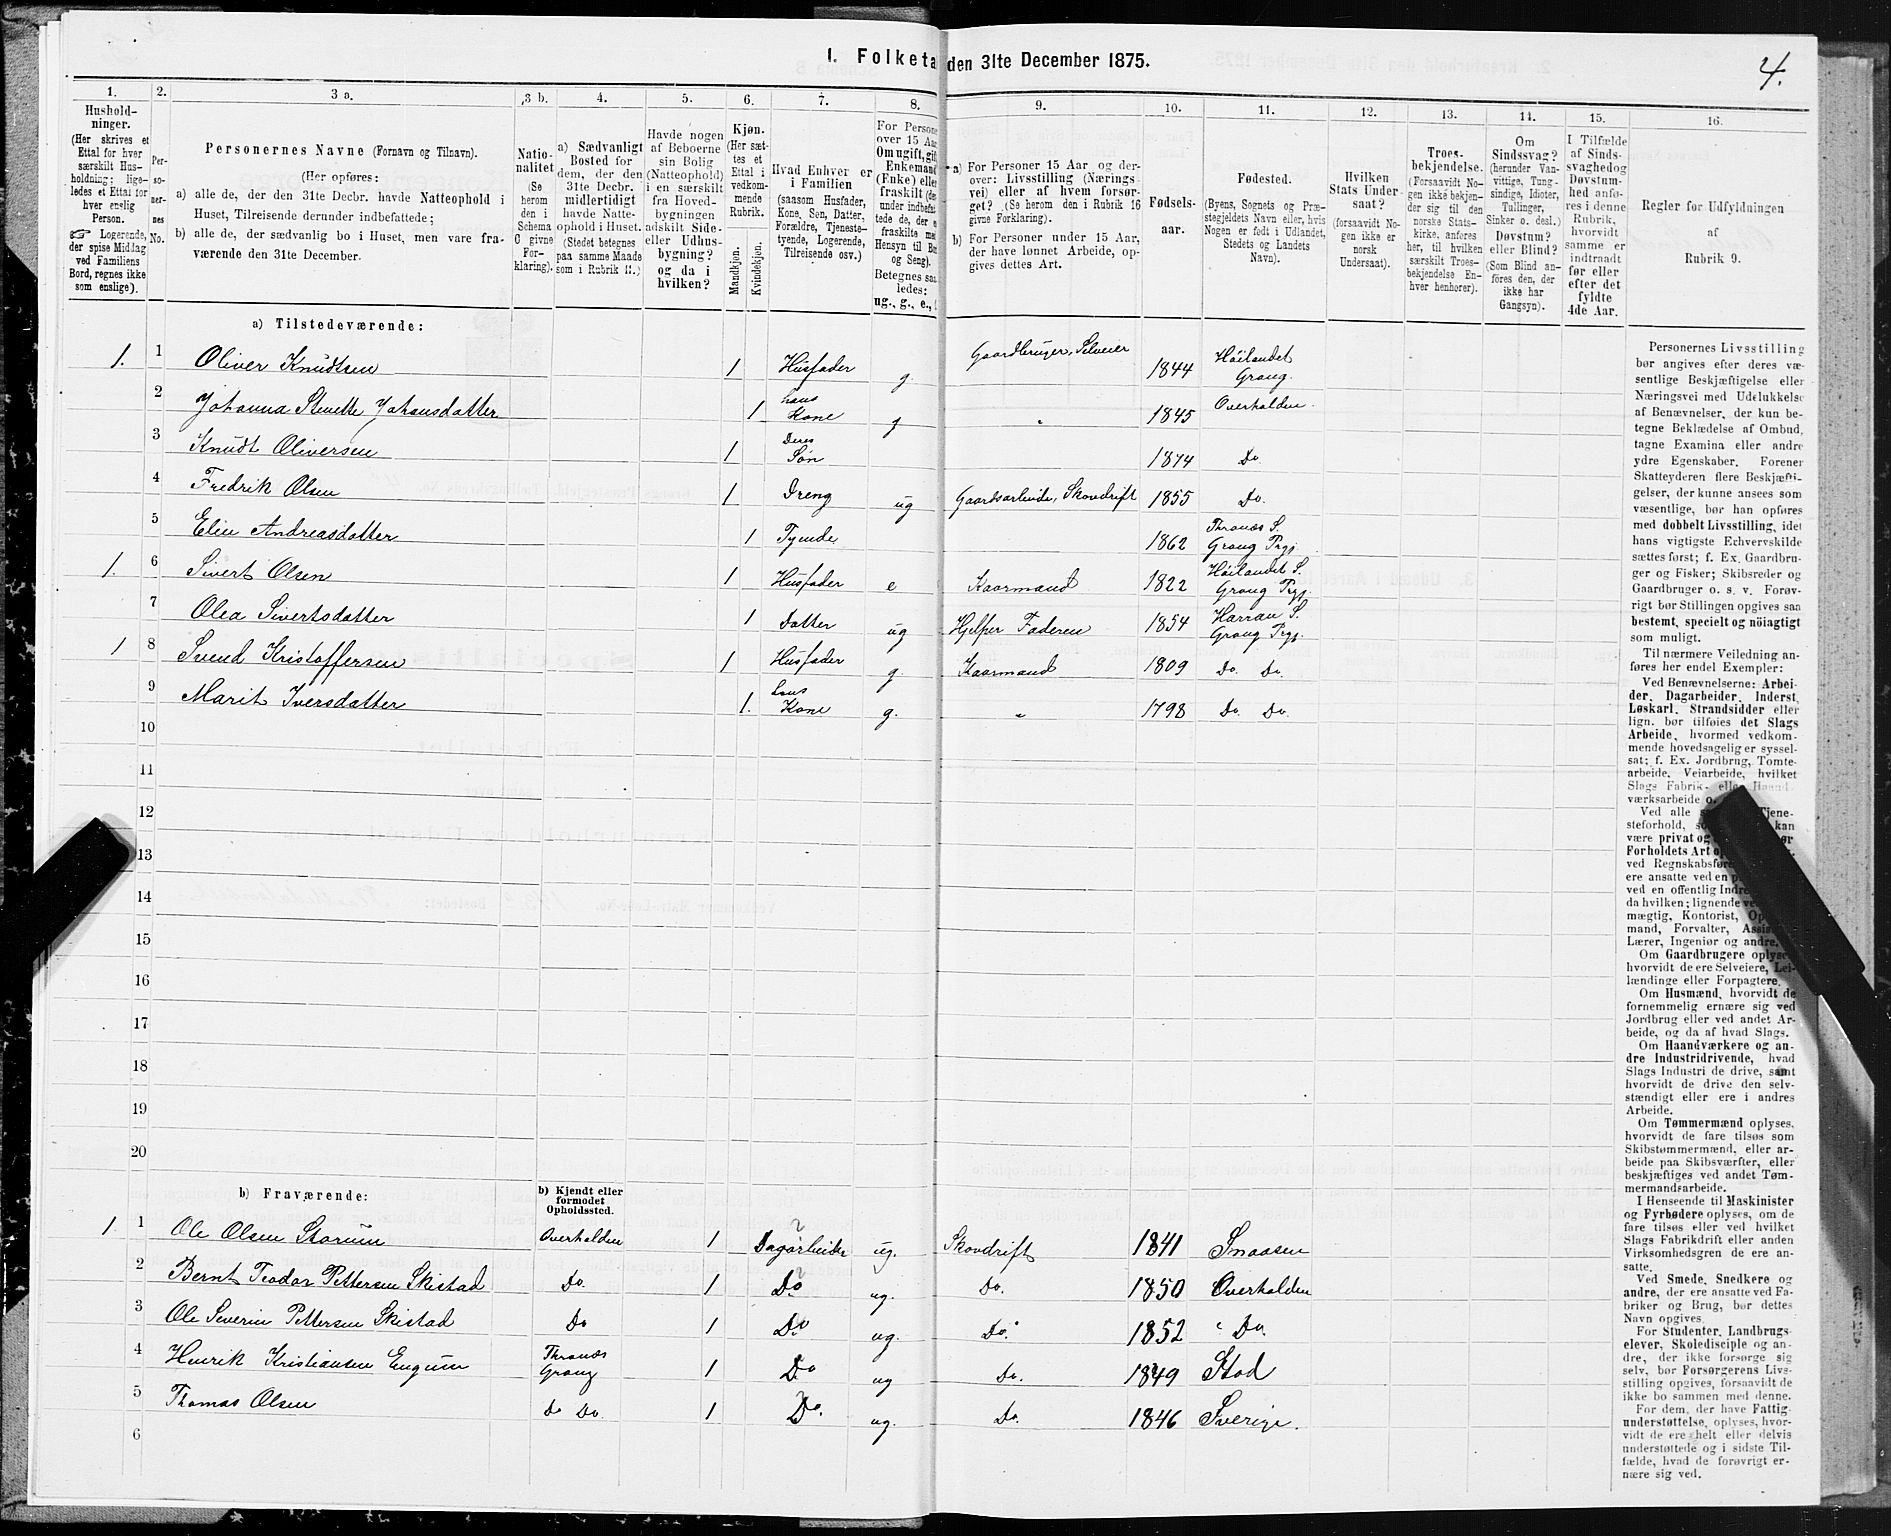 1. Folketa den 31te December 1875.
4.
1.
Hushold-
ninger.
(Her skrives et
Ettal for hver
særskilt Hus-
holdning; lige-
ledes et Ettal for
hver enslig
Person.
☞ Logerende,
der spise Middag
ved Familiens
Bord, regnes ikke
som enslige).
2.
Per-
so-
ner-
nes
No.
3 a.
Personernes Navne (Fornavn og Tilnavn).
(Her opføres:
a) alle de, der den 31te Decbr. havde Natteophold i
Huset, Tilreisende derunder indbefattede;
b) alle de, der sædvanlig bo i Huset, men vare fra-
værende den 31te December.
3 b.
Natio-
nalitet
(Se
herom
den i
Schema
C givne
For-
klaring).
4.
a) Sædvanligt
Bosted for
dem, der den
31te Decbr.
midlertidigt
havde Natte-
ophold i Huset.
(Stedet betegnes
paa samme Maade
som i Rubrik 11.)
5.
Havde nogen
af Beboerne
sin Bolig
(Natteophold)
i en særskilt
fra Hoved-
bygningen
adskilt Side-
eller Udhus-
bygning?
og da i
hvilken?
6.
Kjøn.
(Her sæt-
tes et
Ettal i
vedkom-
mende
Rubrik.
Mandkjøn.
Kvindekjøn.
7.
Hvad Enhver er
i Familien
(saasom Husfader,
Kone, Søn, Datter,
Forældre, Tjeneste-
tyende, Logerende,
Tilreisende osv.)
8.
For Persone
over 15 Aar
Om ugift, gif
Enkemand
(Enke) elle
fraskilt (de
under indbefat
tede de, der e
fraskilte me
Hensyn til Bo
og Seng).
Betegnes saa
ledes:
ug., g., e.,
9.
a) For Personer 15 Aar og der-
over: Livsstilling (Nærings-
vei) eller af hvem forsør-
get? (Se herom den i Rubrik 16
givne Forklaring).
b) For Personer under 15 Aar,
der have lønnet Arbeide, op-
gives dettes Art.
10.
Fødsels-
aar.
11.
Fødested.
(Byens, Sognets og Præ-
stegjeldets Navn eller, hvis
Nogen er født i Udlandet,
Stedets og Landets
Navn).
12.
Hvilken
Stats Under-
saat?
(forsaavidt No-
gen ikke er
norsk
Undersaat).
13.
Troes-
bekjendelse.
(Forsaavidt No-
gen ikke bekjen-
der sig til den
norske Stats-
kirke, anføres
her, til hvilken
særskilt Troes-
bekjendelse En-
hver henhører).
14.
Om
Sindssvag?
(herunder Van-
vittige, Tung-
sindige, Idioter,
Tullinger,
Sinker o. desl.)
Døvstum?
eller Blind?
(Som Blind an-
føres den, der
ikke har
Gangsyn).
15.
I Tilfælde
af Sinds-
svaghed og
Døvstum-
hed anfø-
res i denne
Rubrik,
hvorvidt
samme er
indtraadt
før eller
efter det
fyldte
4de Aar.
16.
Regler for Udfyldningen
af
Rubrik 9.
a) Tilstedeværende:
1. 1 Oliver Knudtsen 1 Husfader g. Gaardbruger, Selveier 1844 Höilandet Grong.
2 Johanna Stenette Johansdatter 1 hans Kone g " 1845 Overhalden.
3 Knudt Oliversen 1 Deres Søn 1874 Do.
4 Fredrik Olsen 1 Dreng ug Gaardsarbeide, Skovdrift 1855 Do.
5 Elin Andreasdatter 1 Tjende 1862 Thronæs S. Grong Prgj.
1. 6 Sivert Olsen 1 Husfader e Kaarmand 1822 Höilandet S. Grong Prgj.
7 Olea Sivertsdatter 1 Datter ug Hjelper Faderen 1854 Harran S. Grong Prgj.
1 8 Svend Kristoffersen 1 Husfader g. Kaarmand 1809 Do. Do.
9 Marit Iversdatter 1. hans Kone g. " 1798 Do. Do.
10
11
12
13
14
15
16
17
18
19
20
b) Fraværende:
b) Kjendt eller
formodet
Opholdssted.
1. 1 Ole Olsen Overhalden 1 Dagarbeider ug. Skovdrift 1841 Snaasen
2 Bernt Teodor Pettersen Skistad Do. 1 Do ug. Do. 1850 Overhalden
3 Ole Severin Pettersen Skistad Do 1 Do ug. Do. 1852 " Do.
4 Henrik Kristiansen Thronæs Grong 1 Do ug Do. 1849 Stod
5 Thomas Olsen do Do. 1 Do. ug. Do. 1846 Sverige.
6
Personernes Livsstilling
bør angives efter deres væ-
sentlige Beskjæftigelse eller
Næringsvei med Udelukkelse
af Benævnelser, der kun be-
tegne Beklædelse af Ombud,
tagne Examina eller andre
ydre Egenskaber. Forener
Skatteyderen flere Beskjæfti-
gelser, der kunne ansees som
væsentlige, bør han opføres
med dobbelt Livsstilling, idet
hans vigtigste Erhvervskilde
sættes først; f. Ex. Gaardbru-
ger og Fisker; Skibsreder og
Gaardbruger o. s. v. Forøv-
rigt bør Stillingen opgives saa
bestemt, specielt og nöiagtigt
som muligt.
Til nærmere Veiledning an-
føres her endel Exempler:
Ved Benævnelserne: Arbei-
der, Dagarbeider, Inderst,
Løskarl, Strandsidder eller
lign. bør tilføies det Slags
Arbeide, hvormed vedkom-
mende hovedsagelig er syssel-
sat; f. Ex. Jordbrug, Tomte-
arbeide, Veiarbeide, hvilket
Slags Fabrik- eller Haand-
værksarbeide o.
Ved alle Tjene-
steforhold, kan
være privat og
Forholdets Art
ved Regnskabsfør
ere ansatte ved en
ved en offentlig Indre
da hvilken; lignende ve
mægtig, Kontorist, Op
mand, Forvalter, Assis
Lærer, Ingeniør og andre.
Om Gaardbrugere oplyses,
hvorvidt de ere Selveiere, Lei-
lændinge eller Forpagtere.
Om Husmænd, hvorvidt de
fornemmelig ernære sig ved
Jordbrug eller ved andet Ar-
beide, og da af hvad Slags.
Om Haandværkere og an-
dre Industridrivende, hvad
Slags Industri de drive, samt
hvorvidt de drive den selv-
stændigt eller ere i andres
Arbeide.
Om Tømmermænd oplyses,
hvorvidt de fare tilsøs som
Skibstømmermænd, eller ar-
beide paa Skibsværfter, eller
beskjæftiges ved andet Tøm-
mermandsarbeide.
I Henseende til Maskinister
og Fyrbødere oplyses, om de
fare tilsøs eller ved hvilket
Slags Fabrikdrift eller anden
Virksomhedsgren de ere an-
satte.
Ved Smede, Snedkere og
andre, der ere ansatte ved Fa-
briker og Brug, bør dettes
Navn opgives.
For Studenter, Landbrugs-
elever, Skoledisciple og an-
dre, der ikke forsørge sig
selv, bør Forsørgerens Livs-
stilling opgives, forsaavidt de
ikke bo sammen med denne.
For dem, der have Fattig-
understøttelse, oplyses, hvor-
vidt de ere helt eller delvis
understøttede og i sidste Til-
fælde, hvad de forøvrigt er-
nære sig ved.